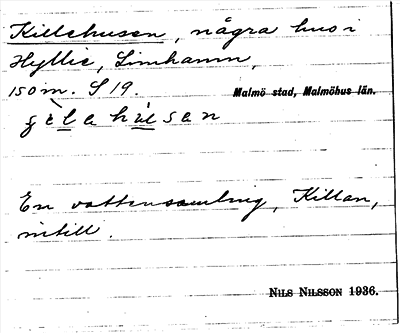 Killehusen, några hus i
Hyllie, Limhamn,
150 m. S 19. Malmö stad, Malmöhus län.
En vattensamling, Killan,
intill.
NILS NILSSON 1936.